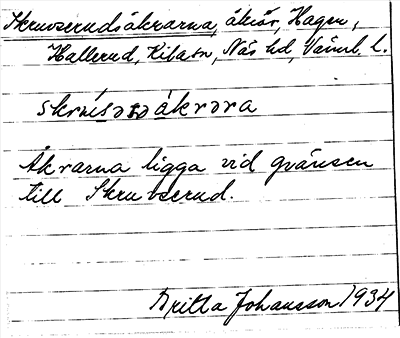 Skruvserudsåkrarna, åkrar, Hagen,
Hallerud, Kila sn, Näs hd, Värml. l.
åkrəra
Åkrarna ligga vid gränsen
till Skruvserud.
Britta Johansson 1934